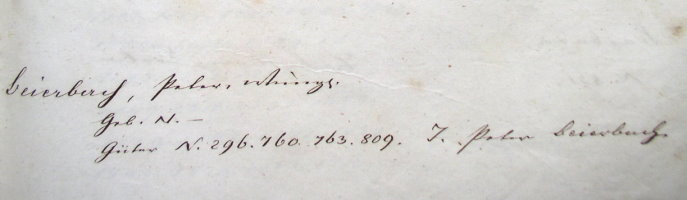 Beierbach, Peter,
Geb. N. —
Güter N. 296. 760. 763. 809. J. Peter Beierbach